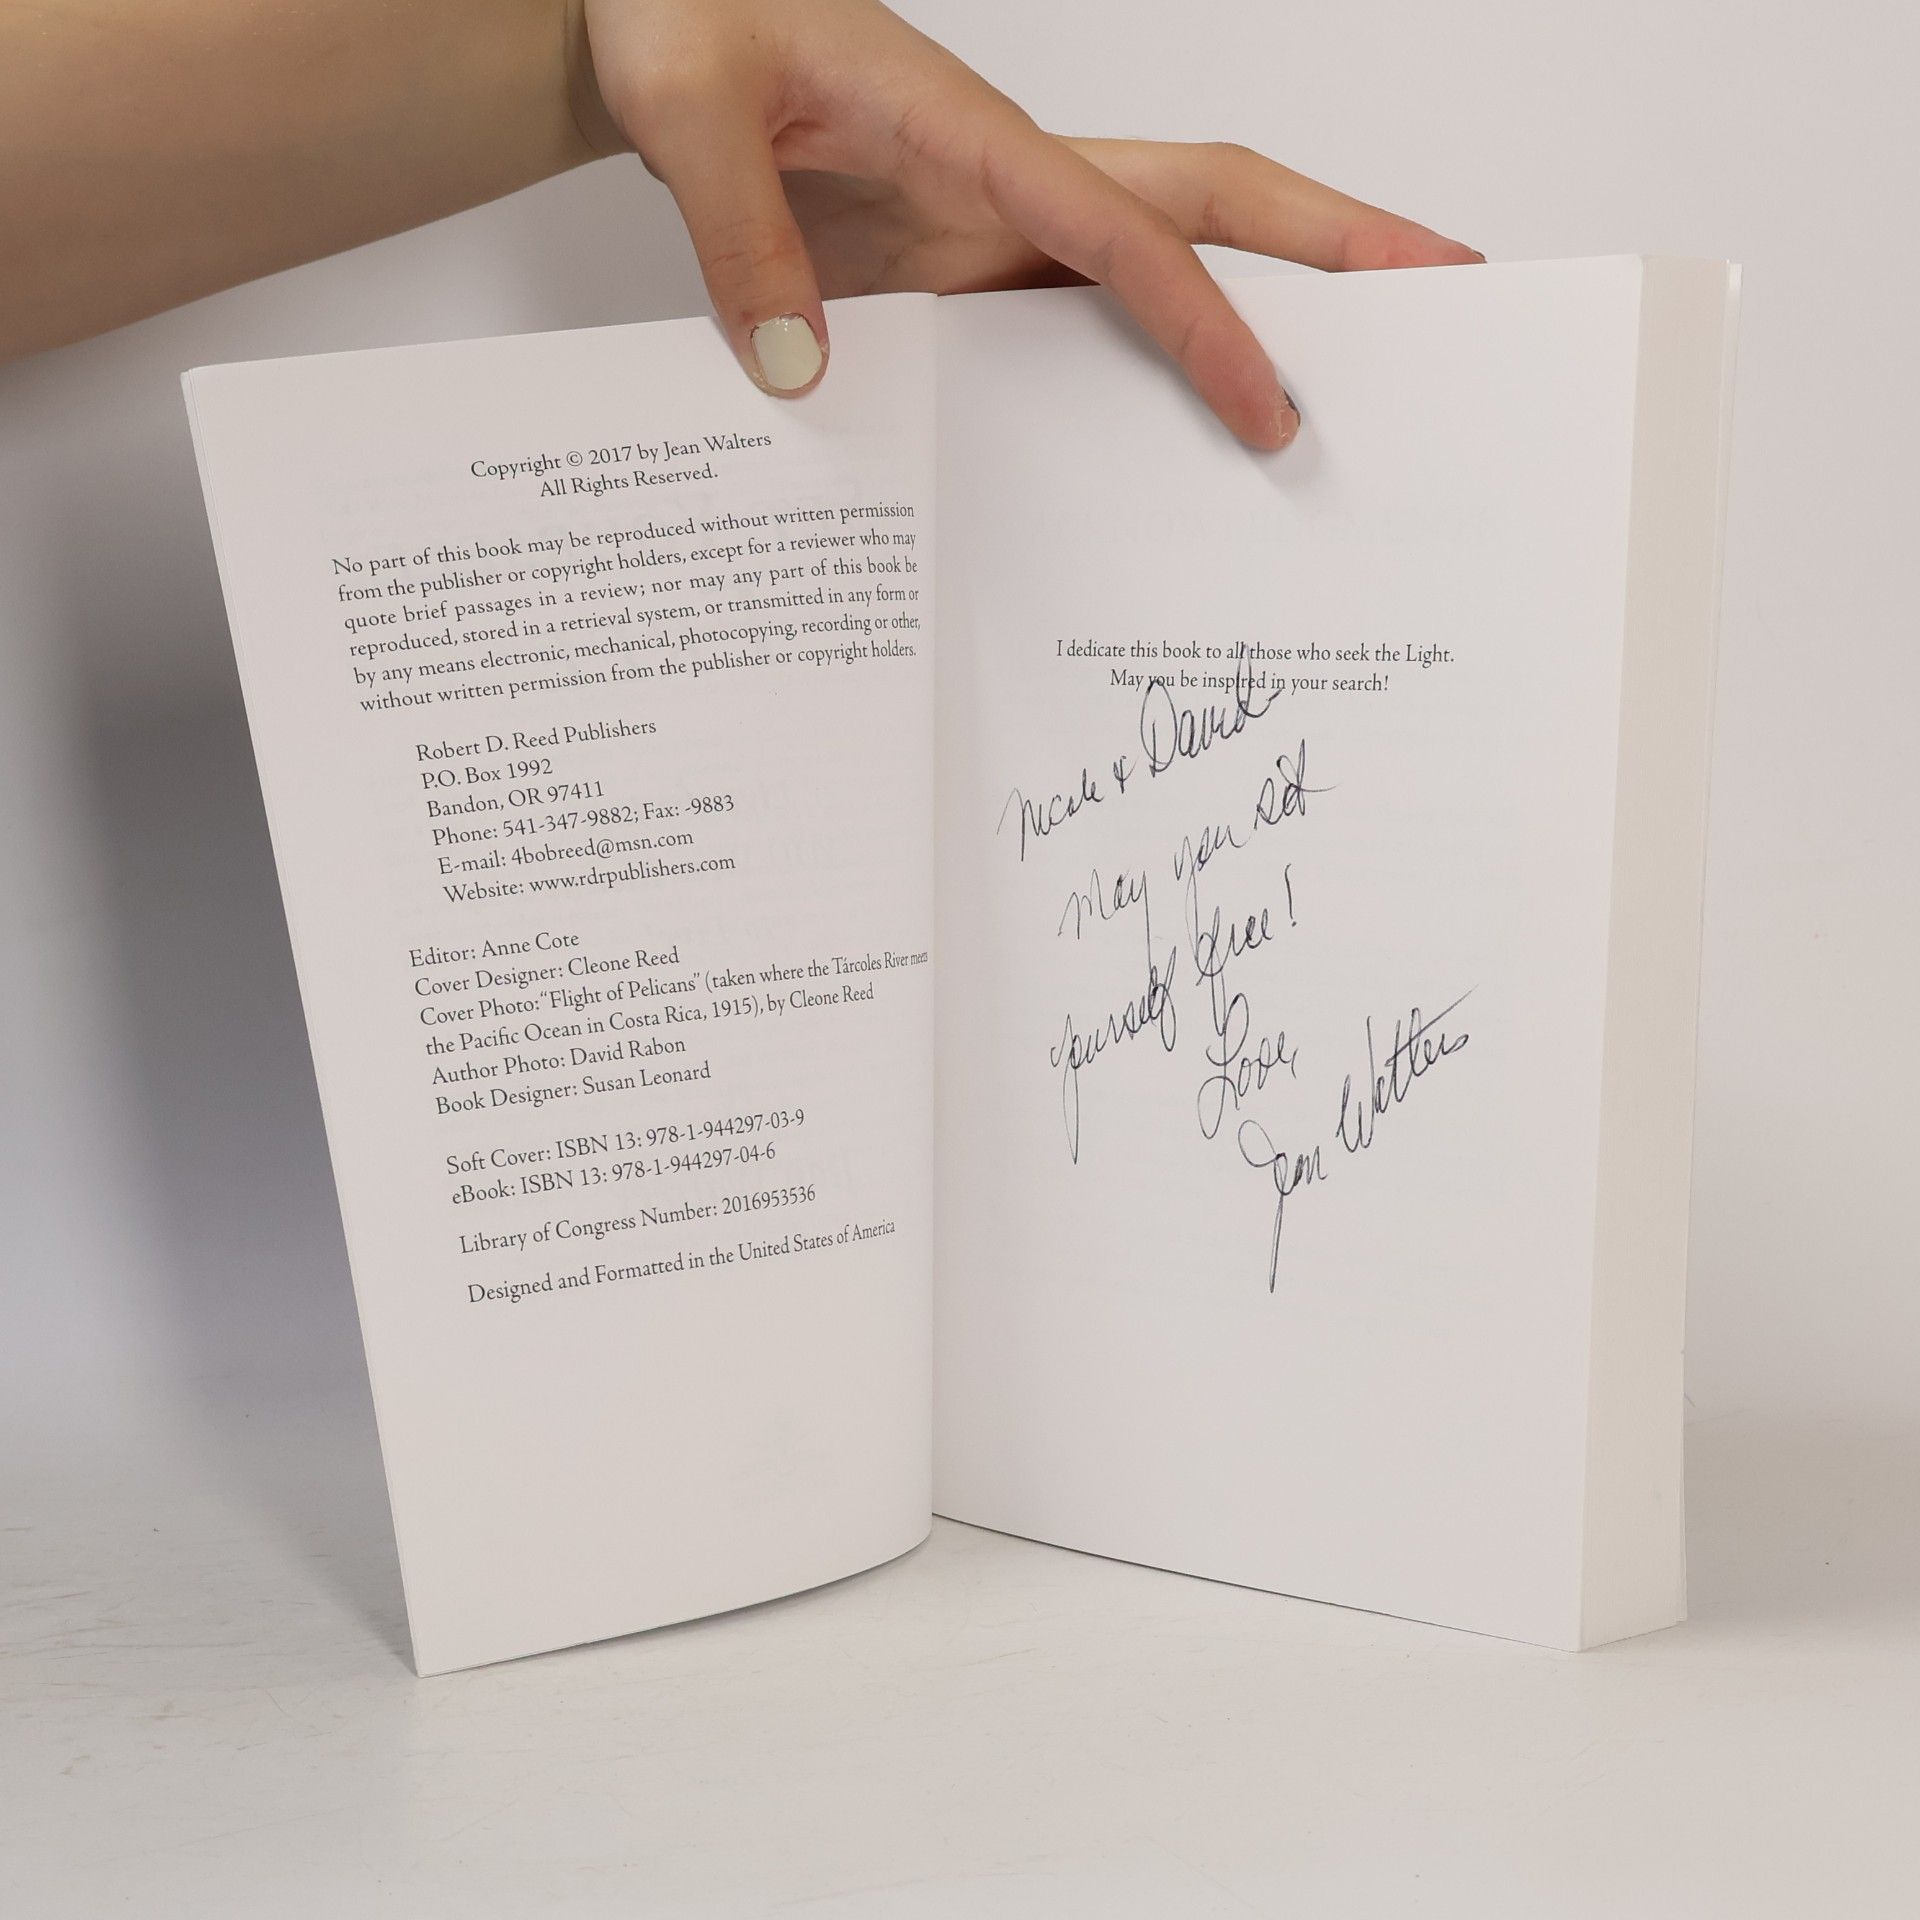 Copyright © 2017 by Jean Walters
All Rights Reserved.
No part of this book may be reproduced without written permission
from the publisher or copyright holders, except for a reviewer who may
quote brief passages in a review; nor may any part of this book be
reproduced, stored in a retrieval system, or transmitted in any form or
by any means electronic, mechanical, photocopying, recording or other,
without written permission from the publisher or copyright holders.
Robert D. Reed Publishers
P.O. Box 1992
Bandon, OR 97411
Phone: 541-347-9882; Fax: -9883
E-mail: 4bobreed@msn.com
Website: www.rdrpublishers.com
Editor: Anne Cote
Cover Designer: Cleone Reed
Cover Photo: “Flight of Pelicans” (taken where the Tárcoles River meets
the Pacific Ocean in Costa Rica, 1915), by Cleone Reed
Author Photo: David Rabon
Book Designer: Susan Leonard
Soft Cover: ISBN 13: 978-1-944297-03-9
eBook: ISBN 13: 978-1-944297-04-6
Library of Congress Number: 2016953536
Designed and Formatted in the United States of America
I dedicate this book to all those who seek the Light.
May you be inspired in your search!
Nicole & David-
May you set
yourself free!
Love,
Jean Walters